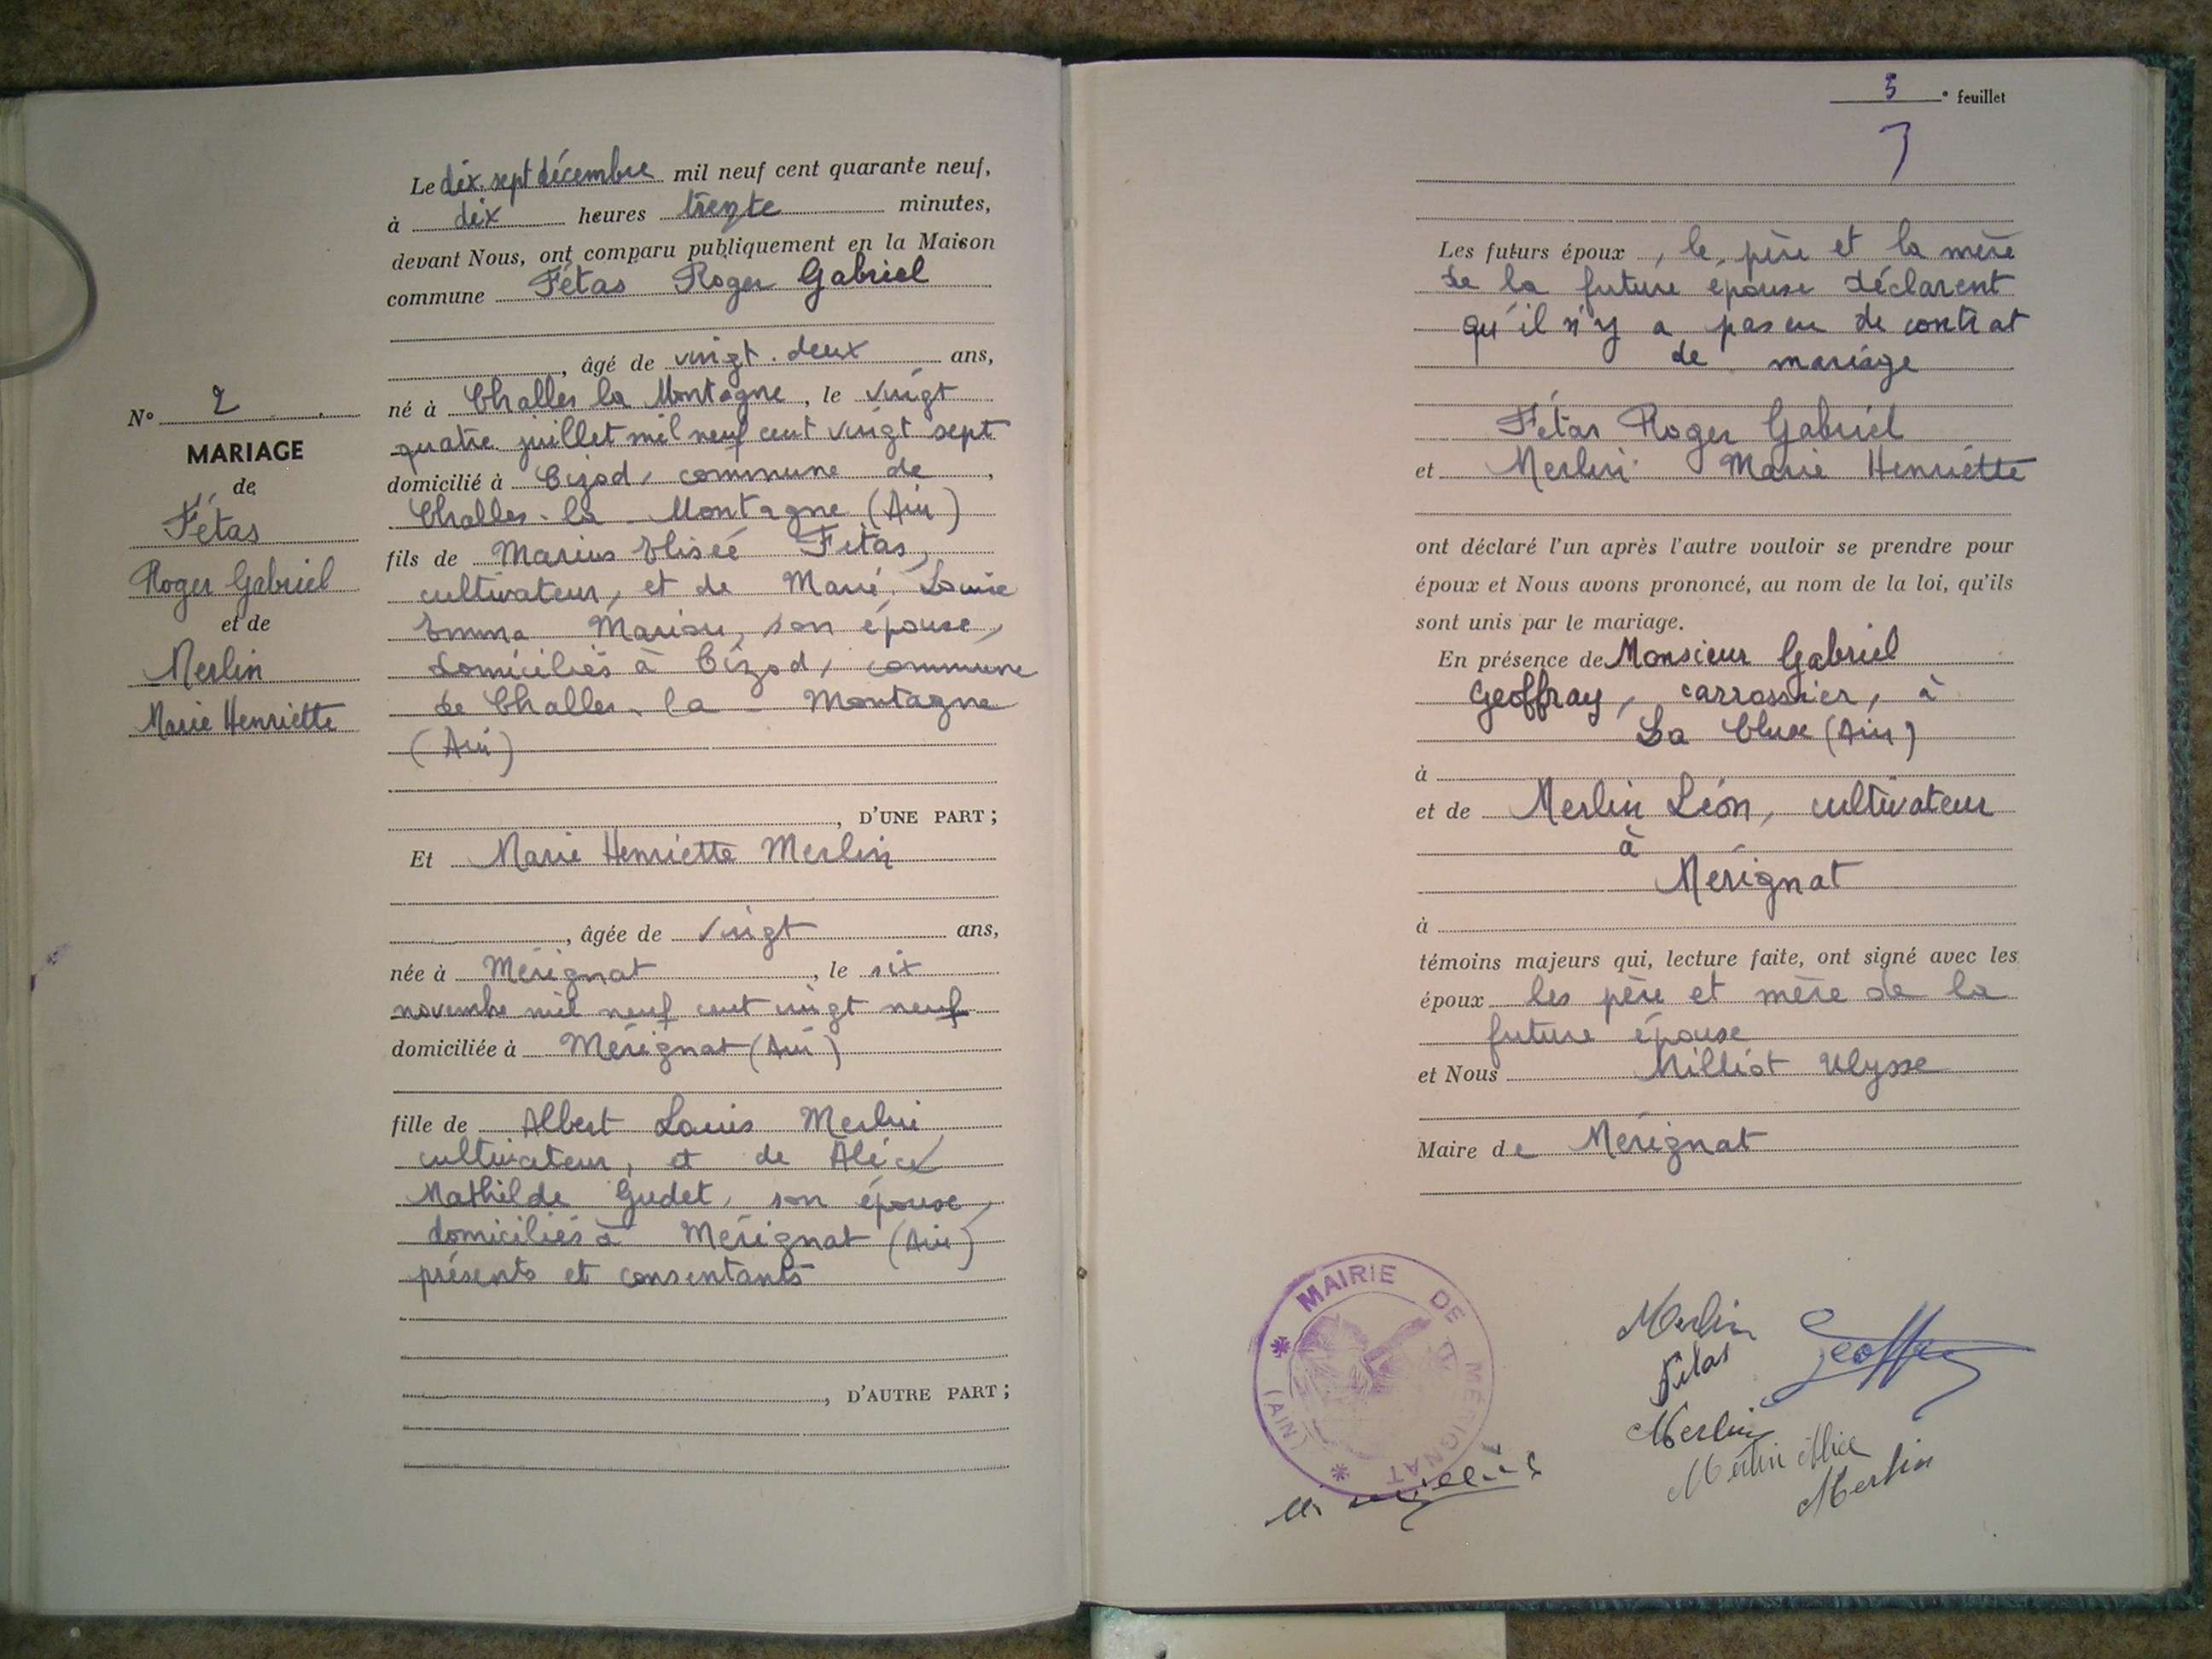 N° 2
MARIAGE
de
Fétas
Roger Gabriel
et de
Merlin
Marie Henriette
Le dix sept décembre mil neuf cent quarante neuf,
à dix heures trente minutes,
devant Nous, ont comparu publiquement en la Maison
commune Fétas Roger Gabriel
, âgé de vingt-deux ans,
né à Challes la Montagne, le vingt
quatre juillet mil neuf cent vingt sept
domicilié à Cizod, commune de ,
Challes-la-Montagne (Ain)
fils de Marius Elisée Fétas,
cultivateur, et de Marie, Louise
Emma, son épouse,
domiciliés à Cizod, commune
de Challes-la-Montagne
(Ain)
, D'UNE PART ;
Et Marie Henriette Merlin
, âgée de vingt ans,
née à Mérignat, le six
novembre mil neuf cent vingt neuf
domiciliée à Mérignat (Ain)
fille de Albert Louis Merlin
cultivateur, et de Alice
Mathilde Gudet, son épouse
domiciliés à Mérignat (Ain)
présents et consentants
, D'AUTRE PART ;
5 e feuillet
Les futurs époux, le père et la mère
de la future épouse déclarent
qu'il n'y a pas eu de contrat
de mariage
Fétas Roger Gabriel
et Merlin Marie Henriette
ont déclaré l'un après l'autre vouloir se prendre pour
époux et Nous avons prononcé, au nom de la loi, qu'ils
sont unis par le mariage.
En présence de Monsieur Gabriel
Geoffray, carrossier, à
La Cluse (Ain)
à
et de Merlin Léon, cultivateur
à
Mérignat
à
témoins majeurs qui, lecture faite, ont signé avec les
époux les père et mère de la
future épouse
et Nous Milliat Ulysse
Maire de Mérignat
MAIRIE DE MÉRIGNAT
(AIN)
Merlin
Fétas
Geoffray
Merlin
Merlin Alice
Merlin